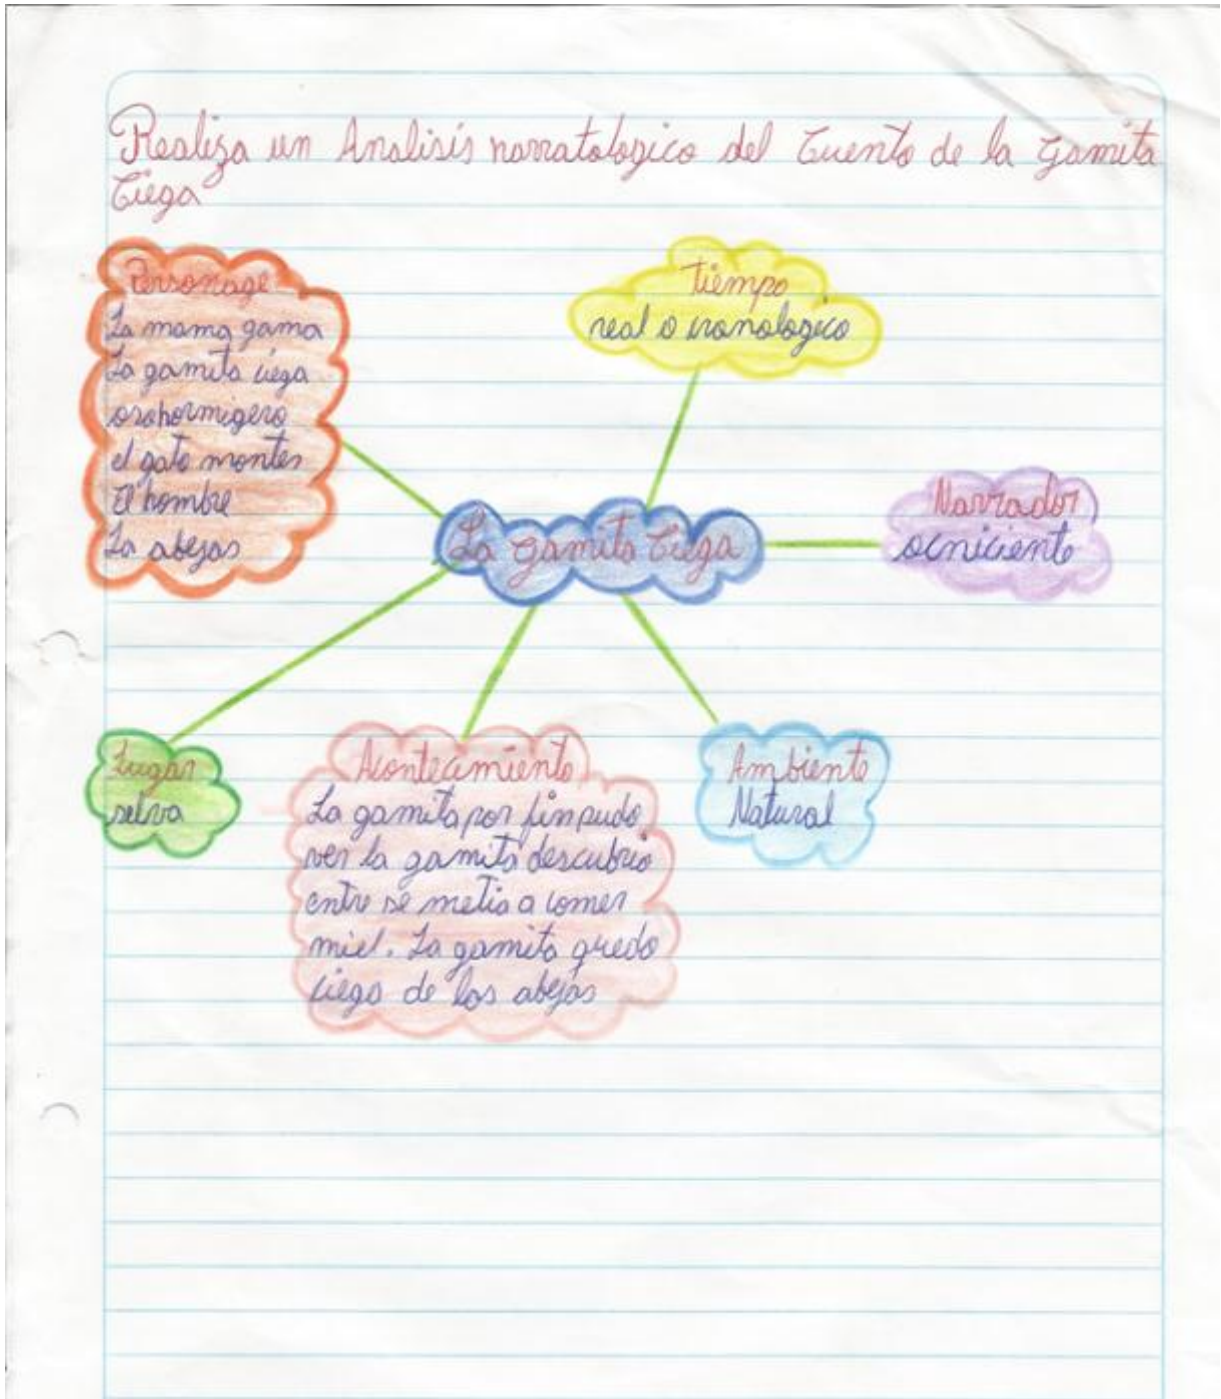 Realiza un Analisis narratologico del Cuento de la Gamita
Ciega
Personage
La mama gama
La gamita ciega
osohormigero
el gato montes
El hombre
La abejas
Tiempo
real o cronologico
Narrador
ocniciente
La gamita Ciega
Lugar
selva
Acontecimiento
La gamita por fin pudo
ver la gamita descubrio
entre se metio a comer
miel. La gamita quedo
ciega de las abejas
Ambiente
Natural